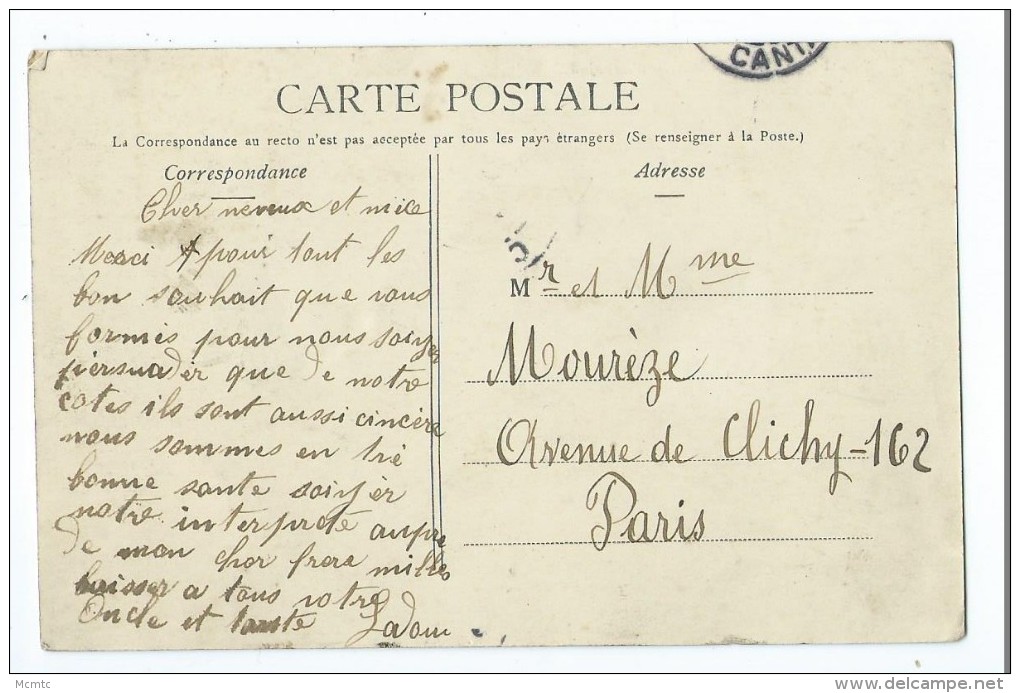 CANT
CARTE POSTALE
La Correspondance au recto n'est pas acceptée par tous les pays étrangers (Se renseigner à la Poste.)
Correspondance
Cher neveux et nice
Merci pour tout les
bon souhait que vous
formés pour nous soiyer
persuadér que de notre
cotes ils sont aussi cincère
nous sommes en trè
bonne sante soiyér
notre interpreté aupre
de mon cher frere milles
baisser a tous votre
Oncle et tante Ladou
Adresse
Mr et Mme
Mourèze
Avenue de Clichy-162
Paris
Mcmtc
delcampe.net